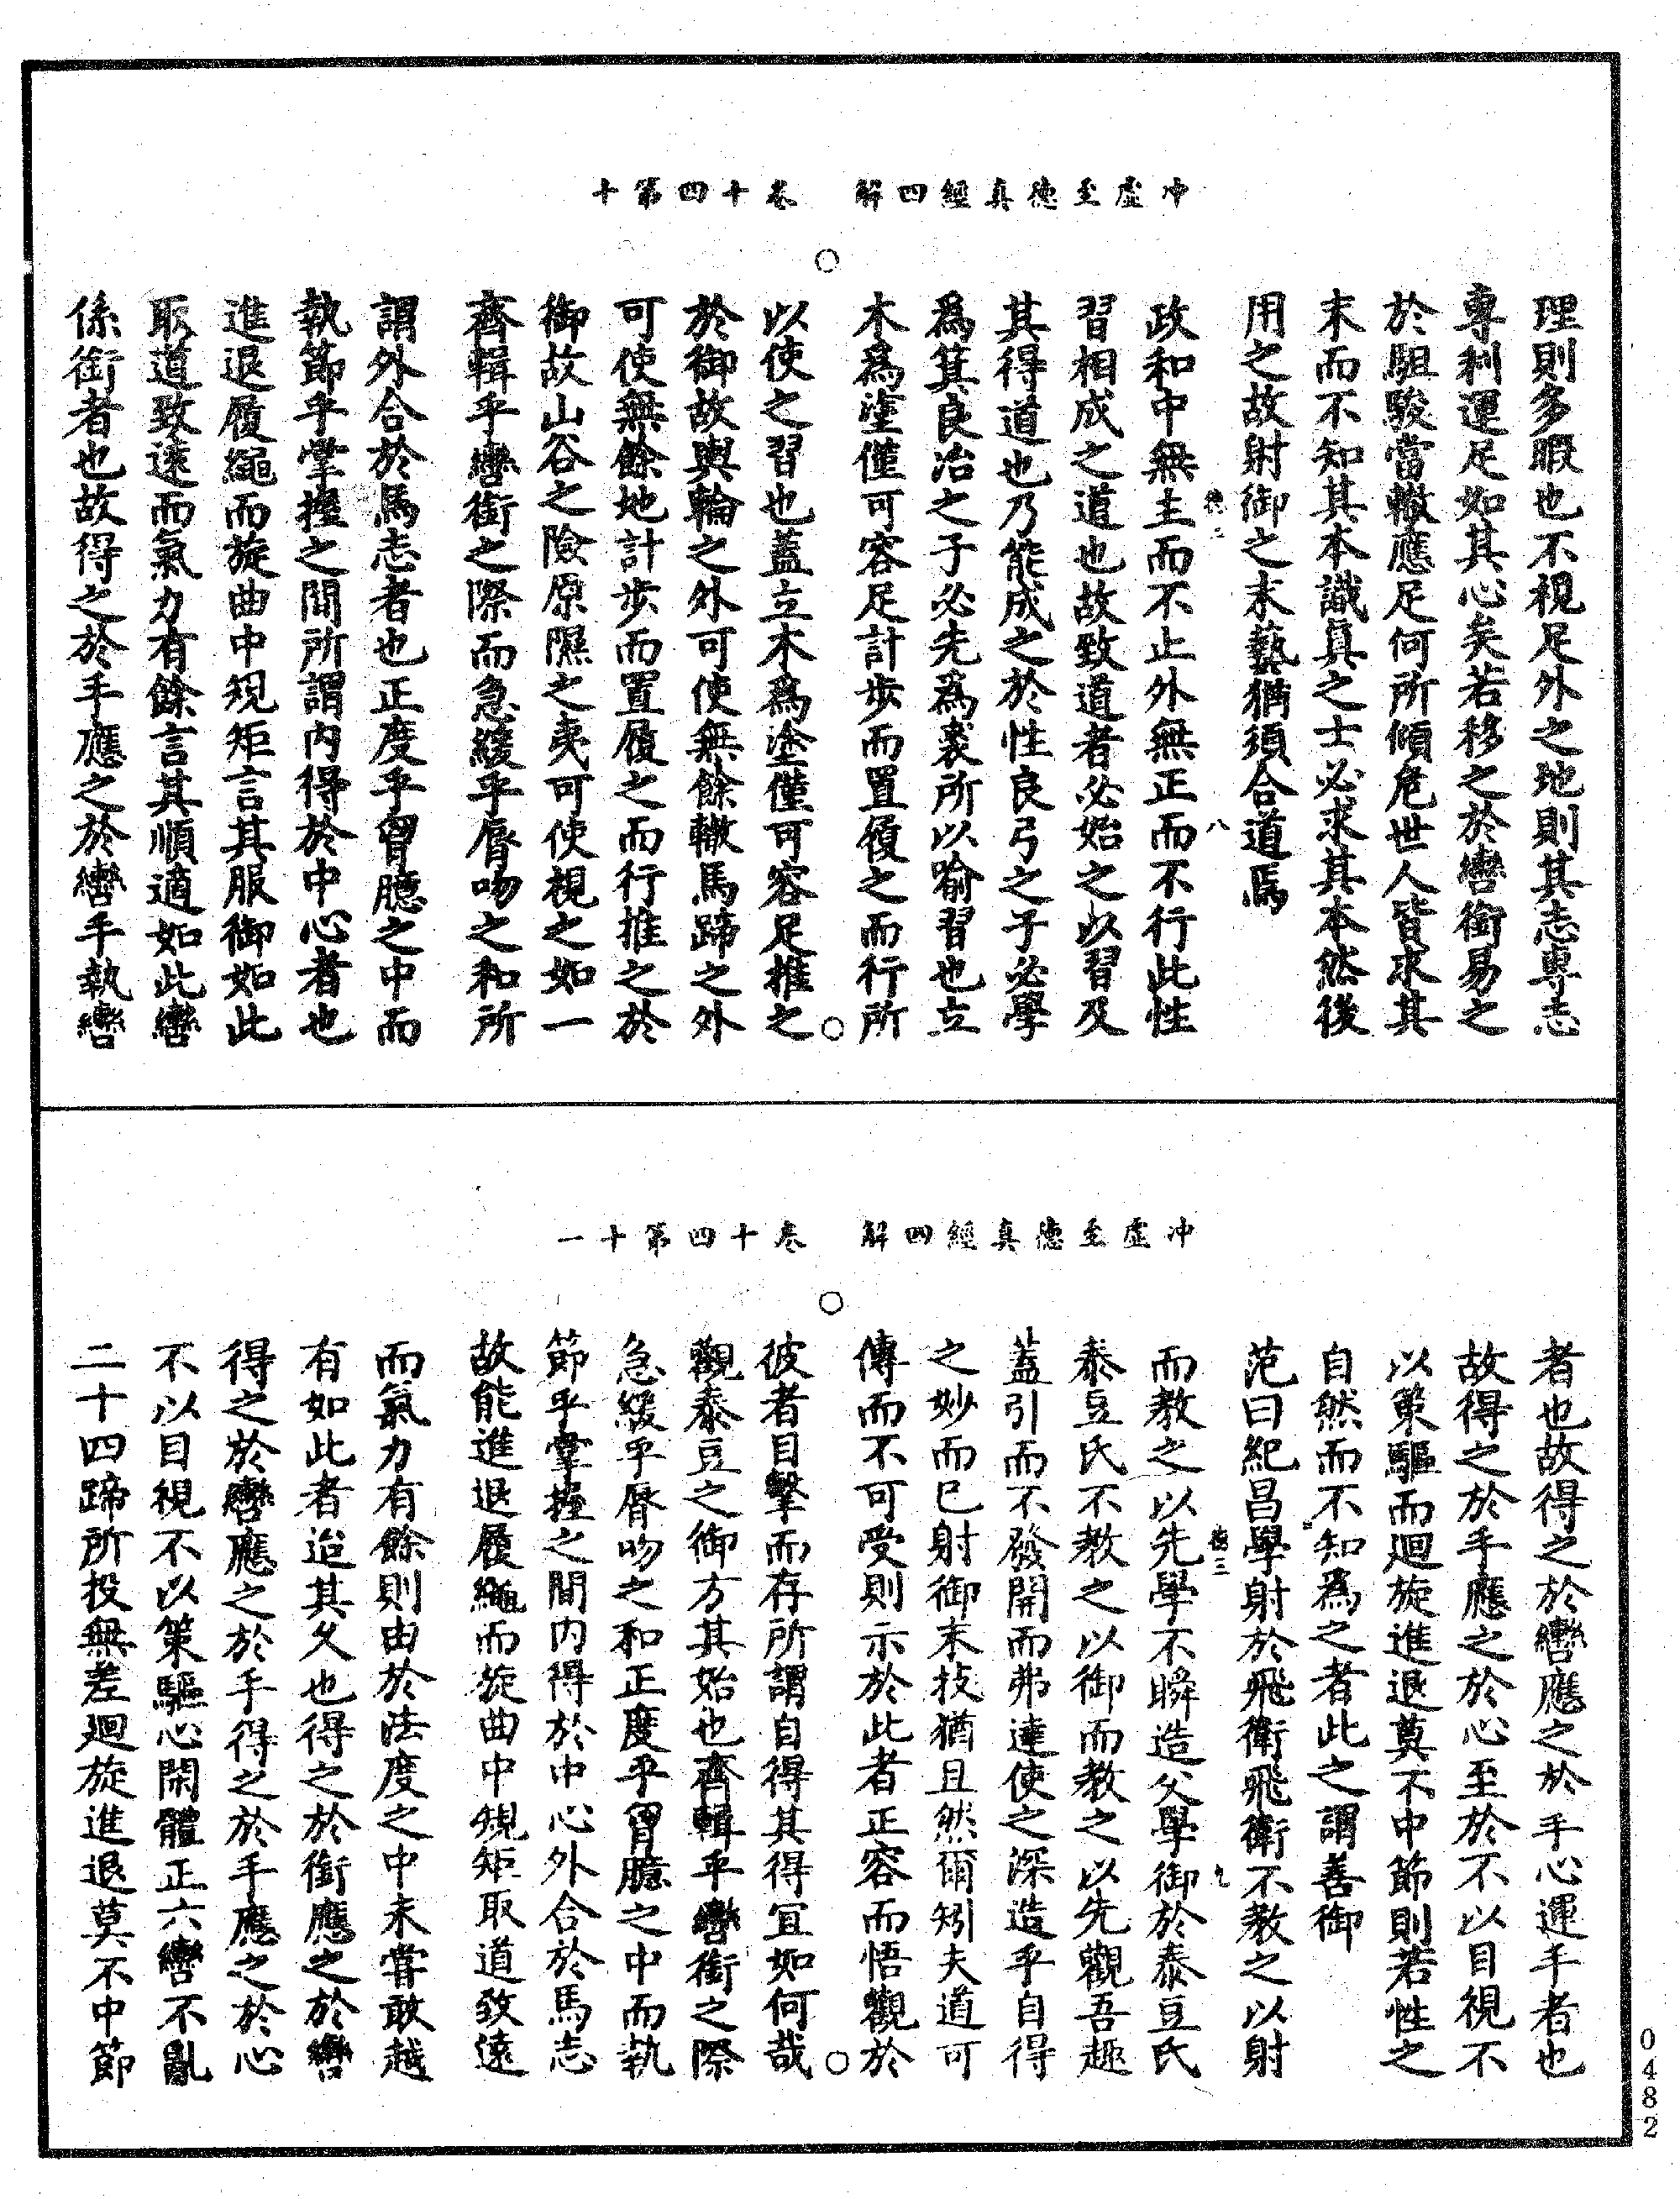 冲虛至德真經四解　卷十四第十
理則多暇也不視足外之地則其志專志
專利運足如其心矣若移之於轡銜易之
於駔駿當轍應足何所傾危世人皆求其
末而不知其本識真之士必求其本然後
用之故射御之末藝猶須合道焉
政和中無主而不止外無正而不行此性
習相成之道也故致道者必始之以習及
其得道也乃能成之於性良弓之子必學
爲箕良冶之子必先爲裘所以喻習也立
木爲塗僅可容足計步而置履之而行所
以使之習也蓋立木爲塗僅可容足推之
於御故輿輪之外可使無餘轍馬蹄之外
可使無餘地計步而置履之而行推之於
御故山谷之險原隰之夷可使視之如一
齊輯乎轡銜之際而急緩乎脣吻之和所
謂外合於馬志者也正度乎胷臆之中而
執節乎掌握之間所謂内得於中心者也
進退履繩而旋曲中規矩言其服御如此
取道致遠而氣力有餘言其順適如此轡
係銜者也故得之於手應之於轡手執轡
冲虛至德真經四解　卷十四第十一
者也故得之於轡應之於手心運手者也
故得之於手應之於心至於不以目視不
以策驅而迴旋進退莫不中節則若性之
自然而不知爲之者此之謂善御
范曰紀昌學射於飛衛飛衛不教之以射
而教之以先學不瞬造父學御於泰豆氏
泰豆氏不教之以御而教之以先觀吾趣
蓋引而不發開而弗達使之深造乎自得
之妙而已射御末技猶且然爾矧夫道可
傳而不可受則示於此者正容而悟觀於
彼者目擊而存所謂自得其得宜如何哉
觀泰豆之御方其始也齊輯乎轡銜之際
急緩乎脣吻之和正度乎胷臆之中而執
節乎掌握之間内得於中心外合於馬志
故能進退履繩而旋曲中規矩取道致遠
而氣力有餘則由於法度之中未嘗敢越
有如此者迨其久也得之於銜應之於轡
得之於轡應之於手得之於手應之於心
不以目視不以策驅心閑體正六轡不亂
二十四蹄所投無差迴旋進退莫不中節
德三
八
德三
九
0482